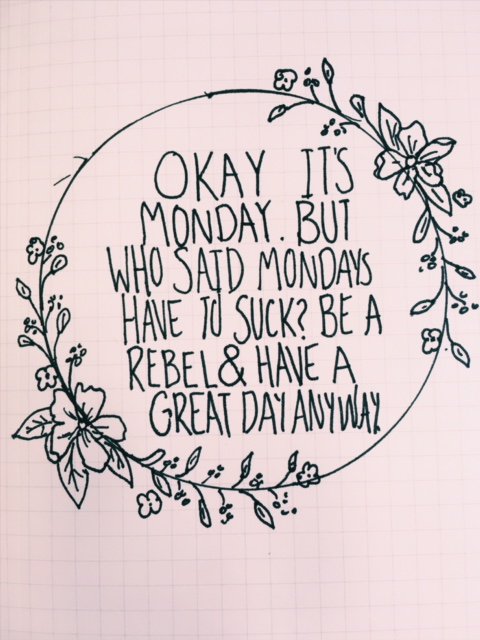 OKAY IT'S
MONDAY. BUT
WHO SAID MONDAYS
HAVE TO SUCK? BE A
REBEL & HAVE A
GREAT DAY ANYWAY.